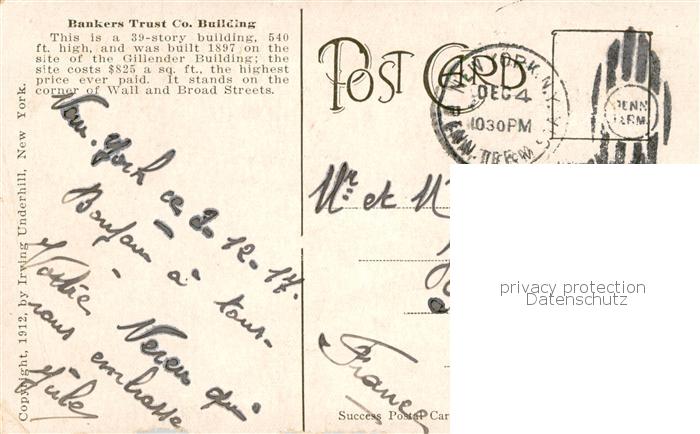 Bankers Trust Co. Building
This is a 39-story building, 540
ft. high, and was built 1897 on the
site of the Gillender Building; the
site costs $825 a sq. ft., the highest
price ever paid. It stands on the
corner of Wall and Broad Streets.
Copyright, 1912, by Irving Underhill, New York.
New-York ce 3-12-17.
Bonjour à tous-
Votre Neveu qui
vous embrasse
Jules
POST CARD
NEW YORK, N.Y.
DEC 4
1030PM
PENN. TERM. STA.
PENN
TERM.
Mr et M
France
Success Postal Car
privacy protection
Datenschutz